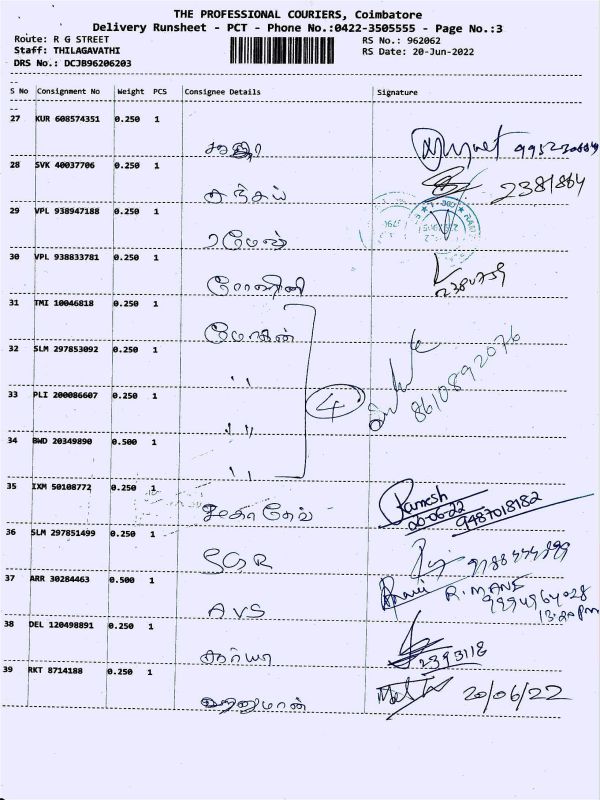 THE PROFESSIONAL COURIERS, Coimbatore
Delivery Runsheet - PCT - Phone No.:0422-3505555 - Page No.:3
Route: R G STREET RS No.: 962062
Staff: THILAGAVATHI RS Date: 20-Jun-2022
DRS No.: DCJB96206203
S No Consignment No Weight PCS Consignee Details Signature
27 KUR 608574351 0.250 1
28 SVK 40037706 0.250 1
சஞ்சய் 2381864
29 VPL 938947188 0.250 1
ரமேஷ்
30 VPL 938833781 0.250 1
ரோஷினி
31 TMI 10046818 0.250 1
மோகன்
32 SLM 297853092 0.250 1
,,
4 8610892076
33 PLI 200086607 0.250 1
,,
34 BWD 20349890 0.500 1
,,
35 IXM 50108772 0.250 1
Ramesh
20-06-22
9487018182
36 SLM 297851499 0.250 1
SGR
37 ARR 30284463 0.500 1
R. MANI
AVS 13:20pm
38 DEL 120498891 0.250 1
சூர்யா 2393118
39 RKT 8714188 0.250 1
ஹனுமான் 20/06/22